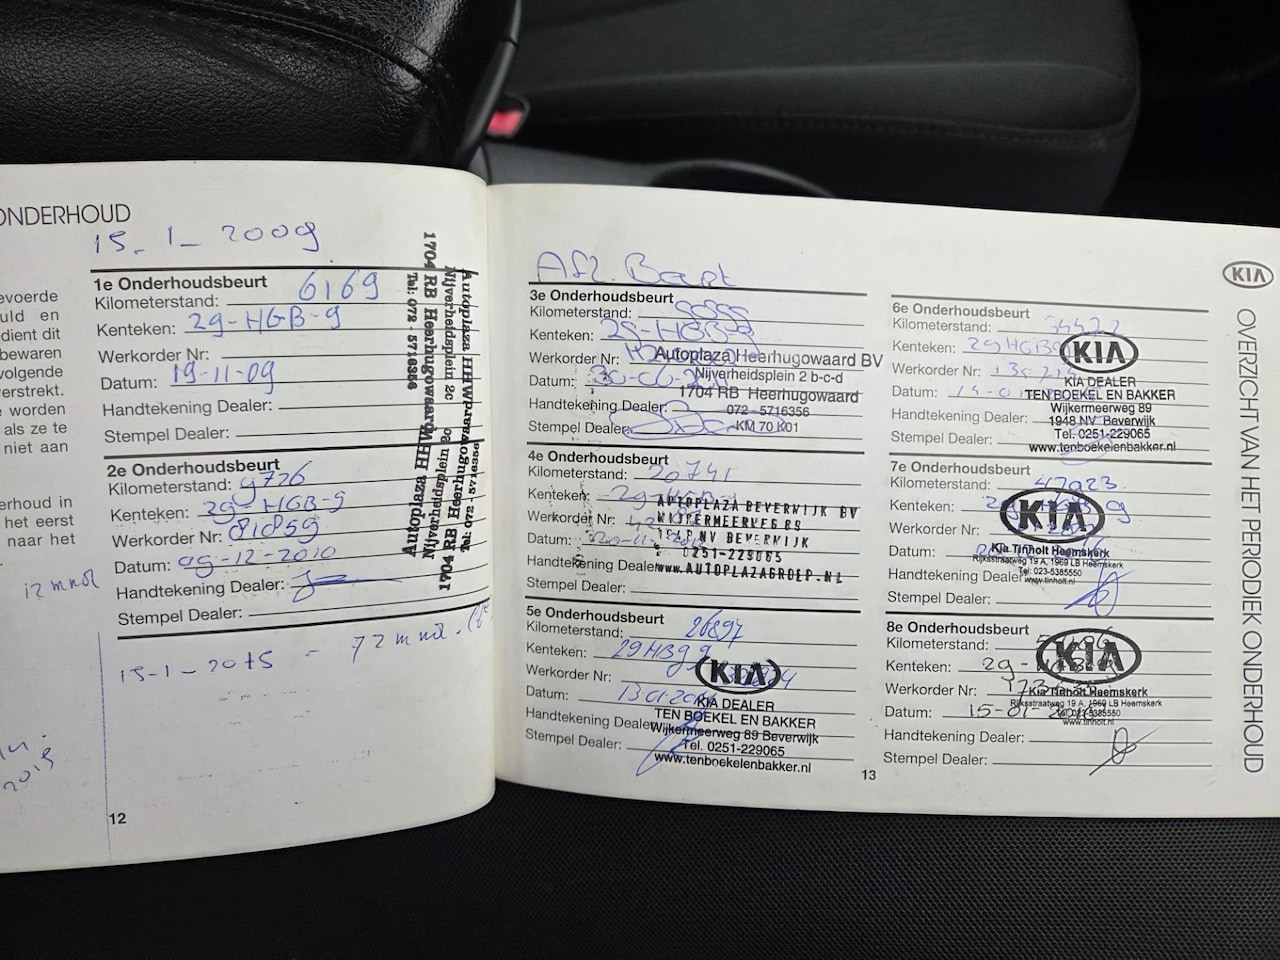 ONDERHOUD
15-1-2009
evoerde
uld en
dient dit
bewaren
volgende
verstrekt.
e worden
als ze te
niet aan
erhoud in
het eerst
naar het
12 mnd
2015
1e Onderhoudsbeurt
Kilometerstand: 6169
Kenteken: 29-HGB-9
Werkorder Nr:
Datum: 19-11-09
Handtekening Dealer:
Stempel Dealer:
Autoplaza HHWrd
Nijverheidsplein 2c
1704 RB Heerhugowaard
Tel: 072 - 5716356
2e Onderhoudsbeurt
Kilometerstand: 9726
Kenteken: 29-HGB-9
Werkorder Nr: 81859
Datum: 09-12-2010
Handtekening Dealer:
Stempel Dealer:
Autoplaza HHWrd
Nijverheidsplein 2c
1704 RB Heerhugowaard
Tel: 072 - 5716356
15-1-2015 - 72 mnd.
12
Afl. Beurt
3e Onderhoudsbeurt
Kilometerstand:
Kenteken: 29-HGB-9
Werkorder Nr:
Datum: 30-06-2011
Handtekening Dealer:
Stempel Dealer:
Autoplaza Heerhugowaard BV
Nijverheidsplein 2 b-c-d
1704 RB Heerhugowaard
072 - 5716356
KM 70 K01
4e Onderhoudsbeurt
Kilometerstand: 20741
Kenteken: 29-HGB-9
Werkorder Nr:
Datum:
Handtekening Dealer:
Stempel Dealer:
AUTOPLAZA BEVERWIJK BV
WIJKERMEERWEG 89
1948 NV BEVERWIJK
0251-229065
www.AUTOPLAZAGROEP.NL
5e Onderhoudsbeurt
Kilometerstand: 26897
Kenteken: 29HGB99
Werkorder Nr:
Datum: 13 01 2014
Handtekening Dealer:
Stempel Dealer:
KIA
KIA DEALER
TEN BOEKEL EN BAKKER
Wijkermeerweg 89 Beverwijk
Tel. 0251-229065
www.tenboekelenbakker.nl
13
KIA
6e Onderhoudsbeurt
Kilometerstand: 34422
Kenteken: 29HGB9
Werkorder Nr:
Datum:
Handtekening Dealer:
Stempel Dealer:
KIA
KIA DEALER
TEN BOEKEL EN BAKKER
Wijkermeerweg 89
1948 NV Beverwijk
Tel. 0251-229065
www.tenboekelenbakker.nl
7e Onderhoudsbeurt
Kilometerstand: 47923
Kenteken:
Werkorder Nr:
Datum:
Handtekening Dealer:
Stempel Dealer:
KIA
Kia Tinholt Heemskerk
Rijksstraatweg 19 A, 1969 LB Heemskerk
Tel: 023-5385550
www.tinholt.nl
8e Onderhoudsbeurt
Kilometerstand:
Kenteken:
Werkorder Nr:
Datum: 15-01-
Handtekening Dealer:
Stempel Dealer:
KIA
Kia Tinholt Heemskerk
Rijksstraatweg 19 A, 1969 LB Heemskerk
Tel: 023-5385550
www.tinholt.nl
OVERZICHT VAN HET PERIODIEK ONDERHOUD